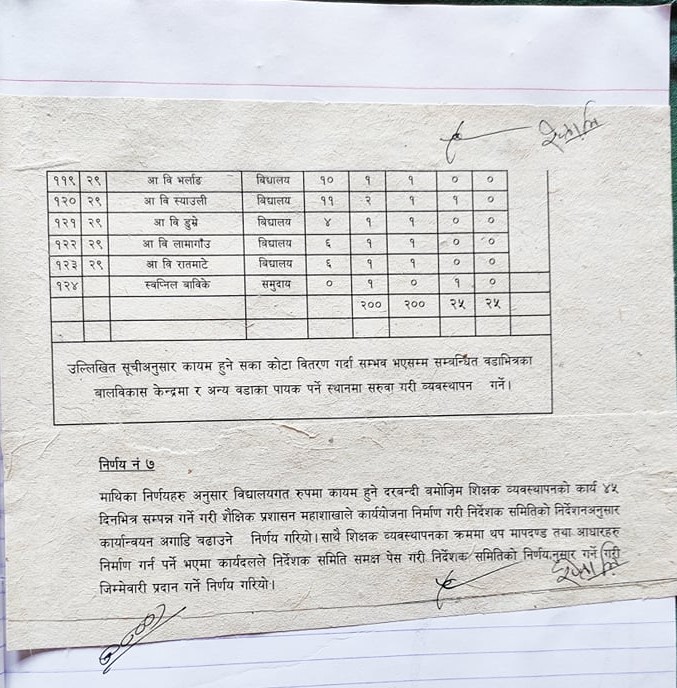 ११९ २९ आ वि भर्लाङ विद्यालय १० १ १ ० ०
१२० २९ आ वि स्याउली विद्यालय ११ २ १ १ ०
१२१ २९ आ वि डुम्रे विद्यालय ४ १ १ ० ०
१२२ २९ आ वि लामागाँउ विद्यालय ६ १ १ ० ०
१२३ २९ आ वि रातमाटे विद्यालय ६ १ १ ० ०
१२४ स्वप्निल बाविके समुदाय ० १ ० १ ०
२०० २०० २५ २५
उल्लिखित सूचीअनुसार कायम हुने सका कोटा वितरण गर्दा सम्भव भएसम्म सम्बन्धित वडाभित्रका
बालविकास केन्द्रमा र अन्य वडाका पायक पर्ने स्थानमा सरुवा गरी व्यवस्थापन गर्ने।
निर्णय नं ७
माथिका निर्णयहरु अनुसार विद्यालयगत रुपमा कायम हुने दरबन्दी बमोजिम शिक्षक व्यवस्थापनको कार्य ४५
दिनभित्र सम्पन्न गर्ने गरी शैक्षिक प्रशासन महाशाखाले कार्ययोजना निर्माण गरी निर्देशक समितिको निर्देशनअनुसार
कार्यान्वयन अगाडि बढाउने निर्णय गरियो। साथै शिक्षक व्यवस्थापनका क्रममा थप मापदण्ड तथा आधारहरु
निर्माण गर्न पर्ने भएमा कार्यदलले निर्देशक समिति समक्ष पेस गरी निर्देशक समितिको निर्णयनुसार गर्ने गरी
जिम्मेवारी प्रदान गर्ने निर्णय गरियो।